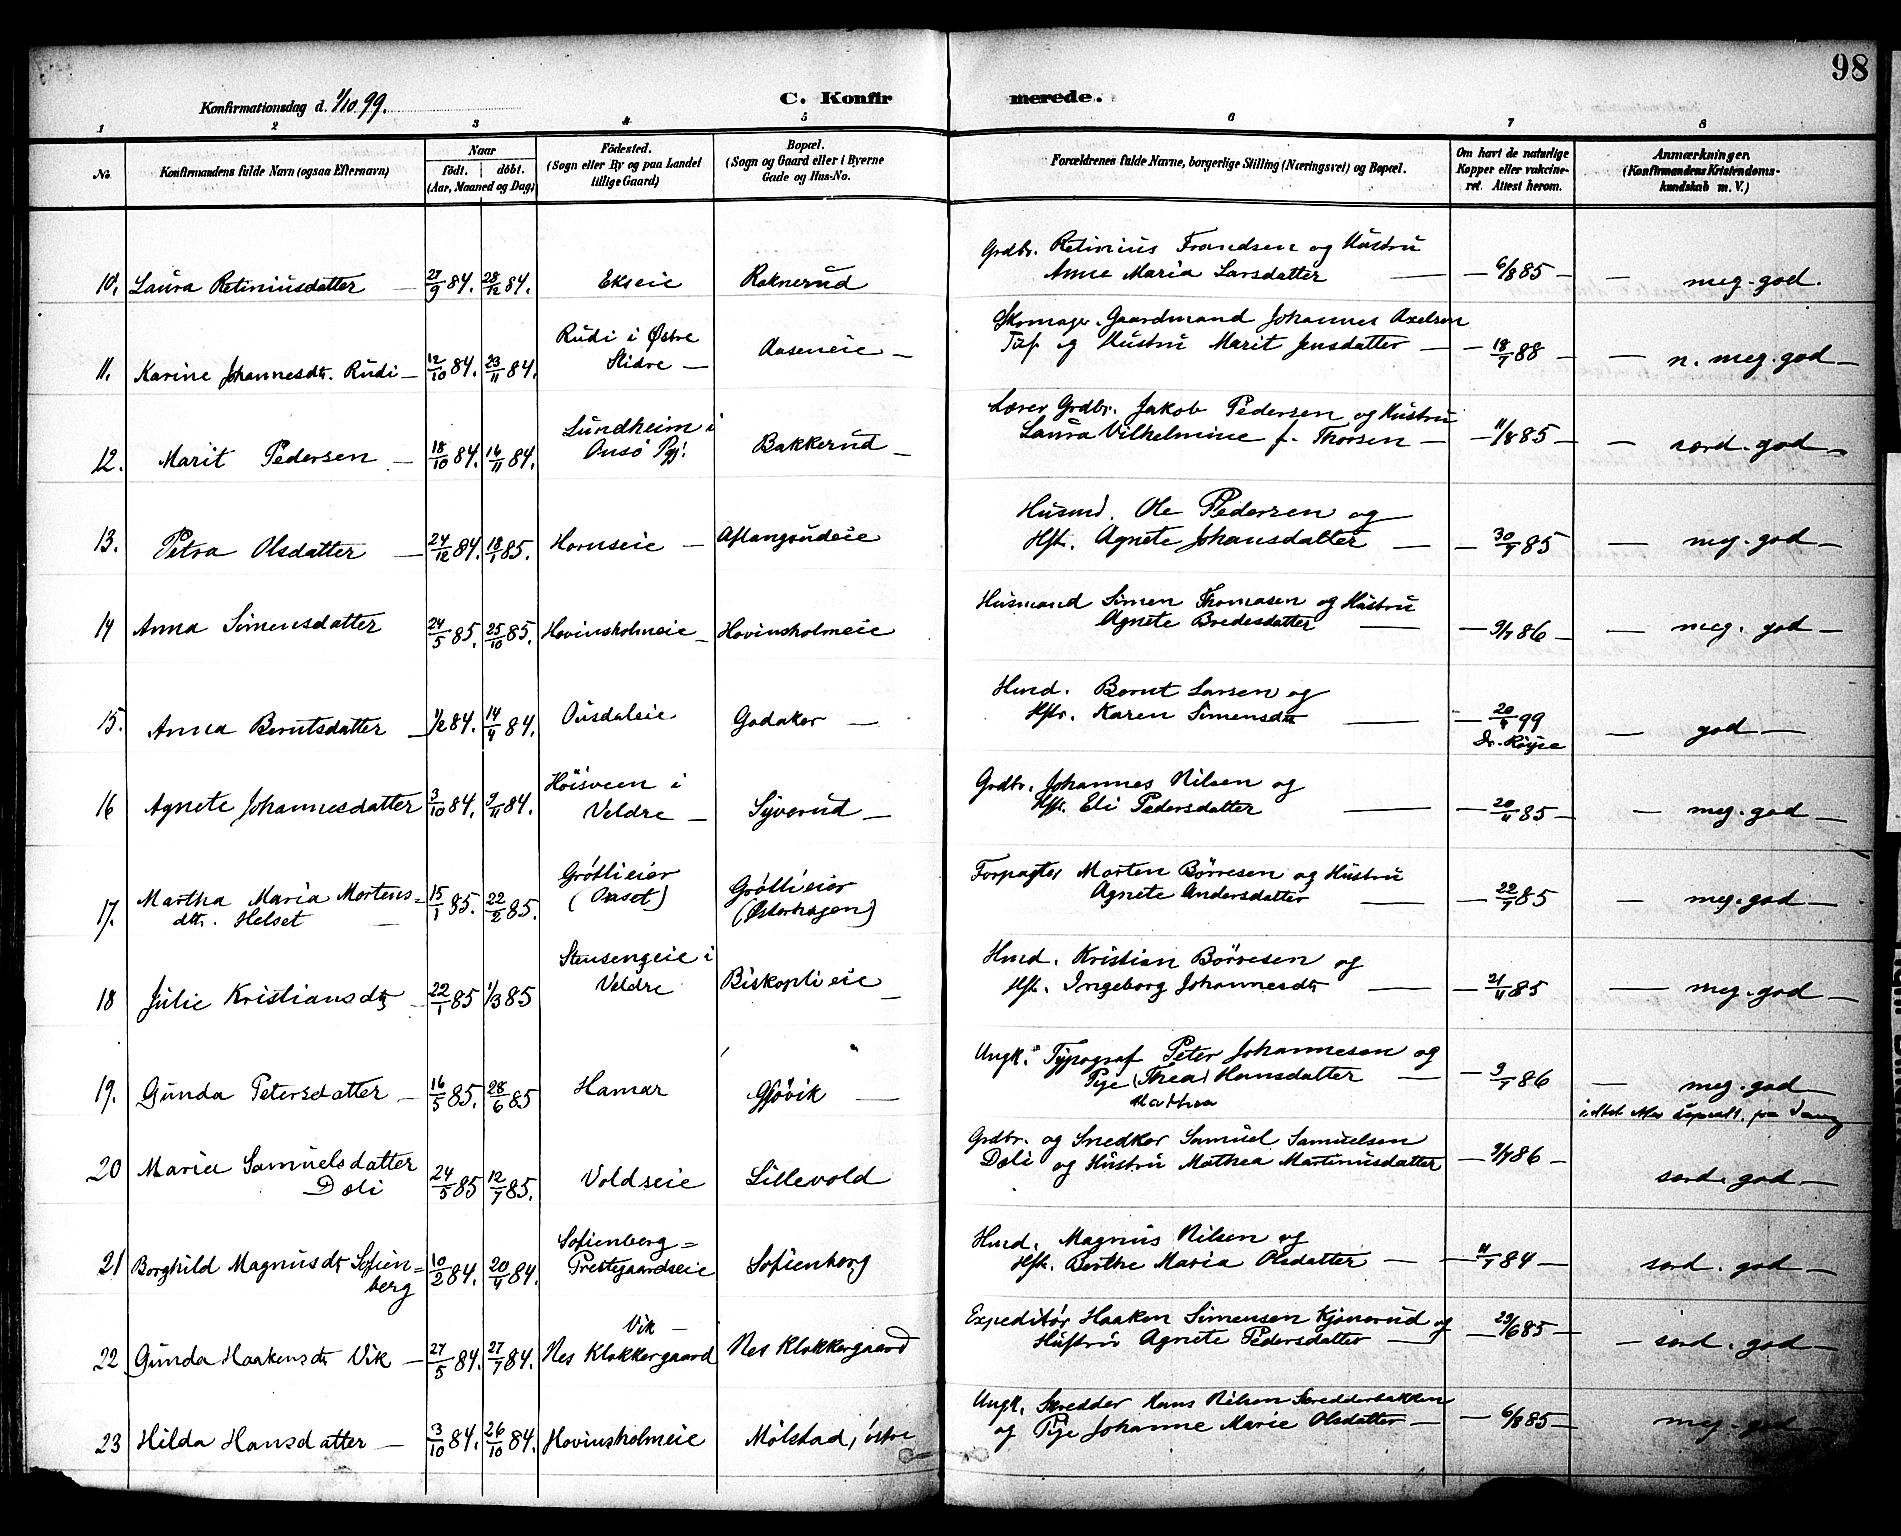 98
Konfirmationsdag d. 1/10 99.
C. Konfirmerede.
1 2 3 4 5 6 7 8
No.
Konfirmandens fulde Navn (ogsaa Efternavn)
Naar
födt. döbt.
(Aar, Maaned og Dag)
Födested.
(Sogn eller By og paa Landet
tillige Gaard)
Bopæl.
(Sogn og Gaard eller i Byerne
Gade og Hus-No.
Forældrenes fulde Navne, borgerlige Stilling (Næringsvei) og Bopæl.
Om havt de naturlige
Kopper eller vakcine-
ret. Attest herom.
Anmærkninger.
(Konfirmandens Kristendoms-
kundskab m. V.)
Grdbr. Retinius Frandsen og Hustru
10. Laura Retiniusdatter — 27/9 84. 28/12 84. Ekseie Raknerud Anne Maria Larsdatter — 6/8 85 — meg. god.
Rudi i Østre Skomager. Gaardmand Johannes Axelsen
11. Karine Johannesdtr. Rudi — 12/10 84. 23/11 84. Slidre — Aaseneie — og Hustru Marit Jensdatter — 18/7 88 — n. meg. god —
Lundheim i Lærer Grdbr. Jakob Pedersen og Hustru
12. Marit Pedersen — 18/10 84. 16/11 84. Pgj. Bakkerud — Laura Vilhelmine f. Thorsen — 11/8 85 — særd. god —
Husmd. Ole Pedersen og
13. Petra Olsdatter — 24/12 84. 18/1 85. Hornseie — Aflangrudeie Hst. Agnete Johansdatter — 30/7 85 — meg. god —
Husmand Simen Thomasen og Hustru
14 Anna Simensdatter 24/5 85. 25/10 85. Hovinsholmeie — Hovinsholmeie Agnete Bredesdatter — 9/7 86 — meg. god —
Hmd. Bernt Larsen og
15. Anna Berntsdatter — 1/2 84. 14/4 84. Ousdaleie Godaker — Hstr. Karen Simensdtr — 20/ 99 — god —
Dr. Röise
Höisveen i Grdbr. Johannes Nilsen og
16 Agnete Johannesdatter 3/10 84. 9/11 84. Veldre — Syverud — Hst. Eli Pedersdatter — 20/11 85 — meg. god —
Martha Maria Mortens= Gröttlieier Gröttlieier Forpagter Morten Börresen og Hustru
17. dtr. Helset — 15/1 85. 22/2 85. (Østerhagen) Agnete Andersdatter — 22/7 85 — meg. god —
Stensengeie i Hmd. Kristian Börresen og
18 Julie Kristiansdtr — 22/1 85 1/3 85 Veldre Biskoplieie — Hst. Ingeborg Johannesdtr — 21/11 85 — meg. god —
Ungk. Typograf Peter Johannesen og
19. Gunda Petersdatter — 16/5 85. 28/6 85 Hamar Gjövik — Pige (Thea) Hansdatter — 9/7 86 — meg. god —
Mathea
Maria Samuelsdatter Grdbr. og Snedker Samuel Samuelsen
20 Dæli 24/5 85 12/7 85. Voldseie Lillevold Dæli og Hustru Mathea Martinusdatter — 9/7 86 — særd. god —
Sofienberg= Hmd. Magnus Nilsen og
21 Borghild Magnusdtr Sofien= 10/2 84. 20/4 84. Prestegaardseie Sofienberg Hst. Berthe Maria Olsdatter — 11/7 84 — særd. god —
berg
Vik — Expeditör Haaken Simensen Kjonerud og
22 Gunda Haakensdtr Vik — 27/5 84. 27/7 84. Nes Klokkergaard Nes Klokkergaard Hustru Agnete Pedersdatter — 29/6 85 — særd. god —
Ungk. Skredder Hans Nilsen Skredderbakken
23 Hilda Hansdatter — 3/10 84. 26/10 84. Hovinsholmeie Mölstad, östre og Pige Johanne Marie Olsdatter — 6/8 85 — meg. god —